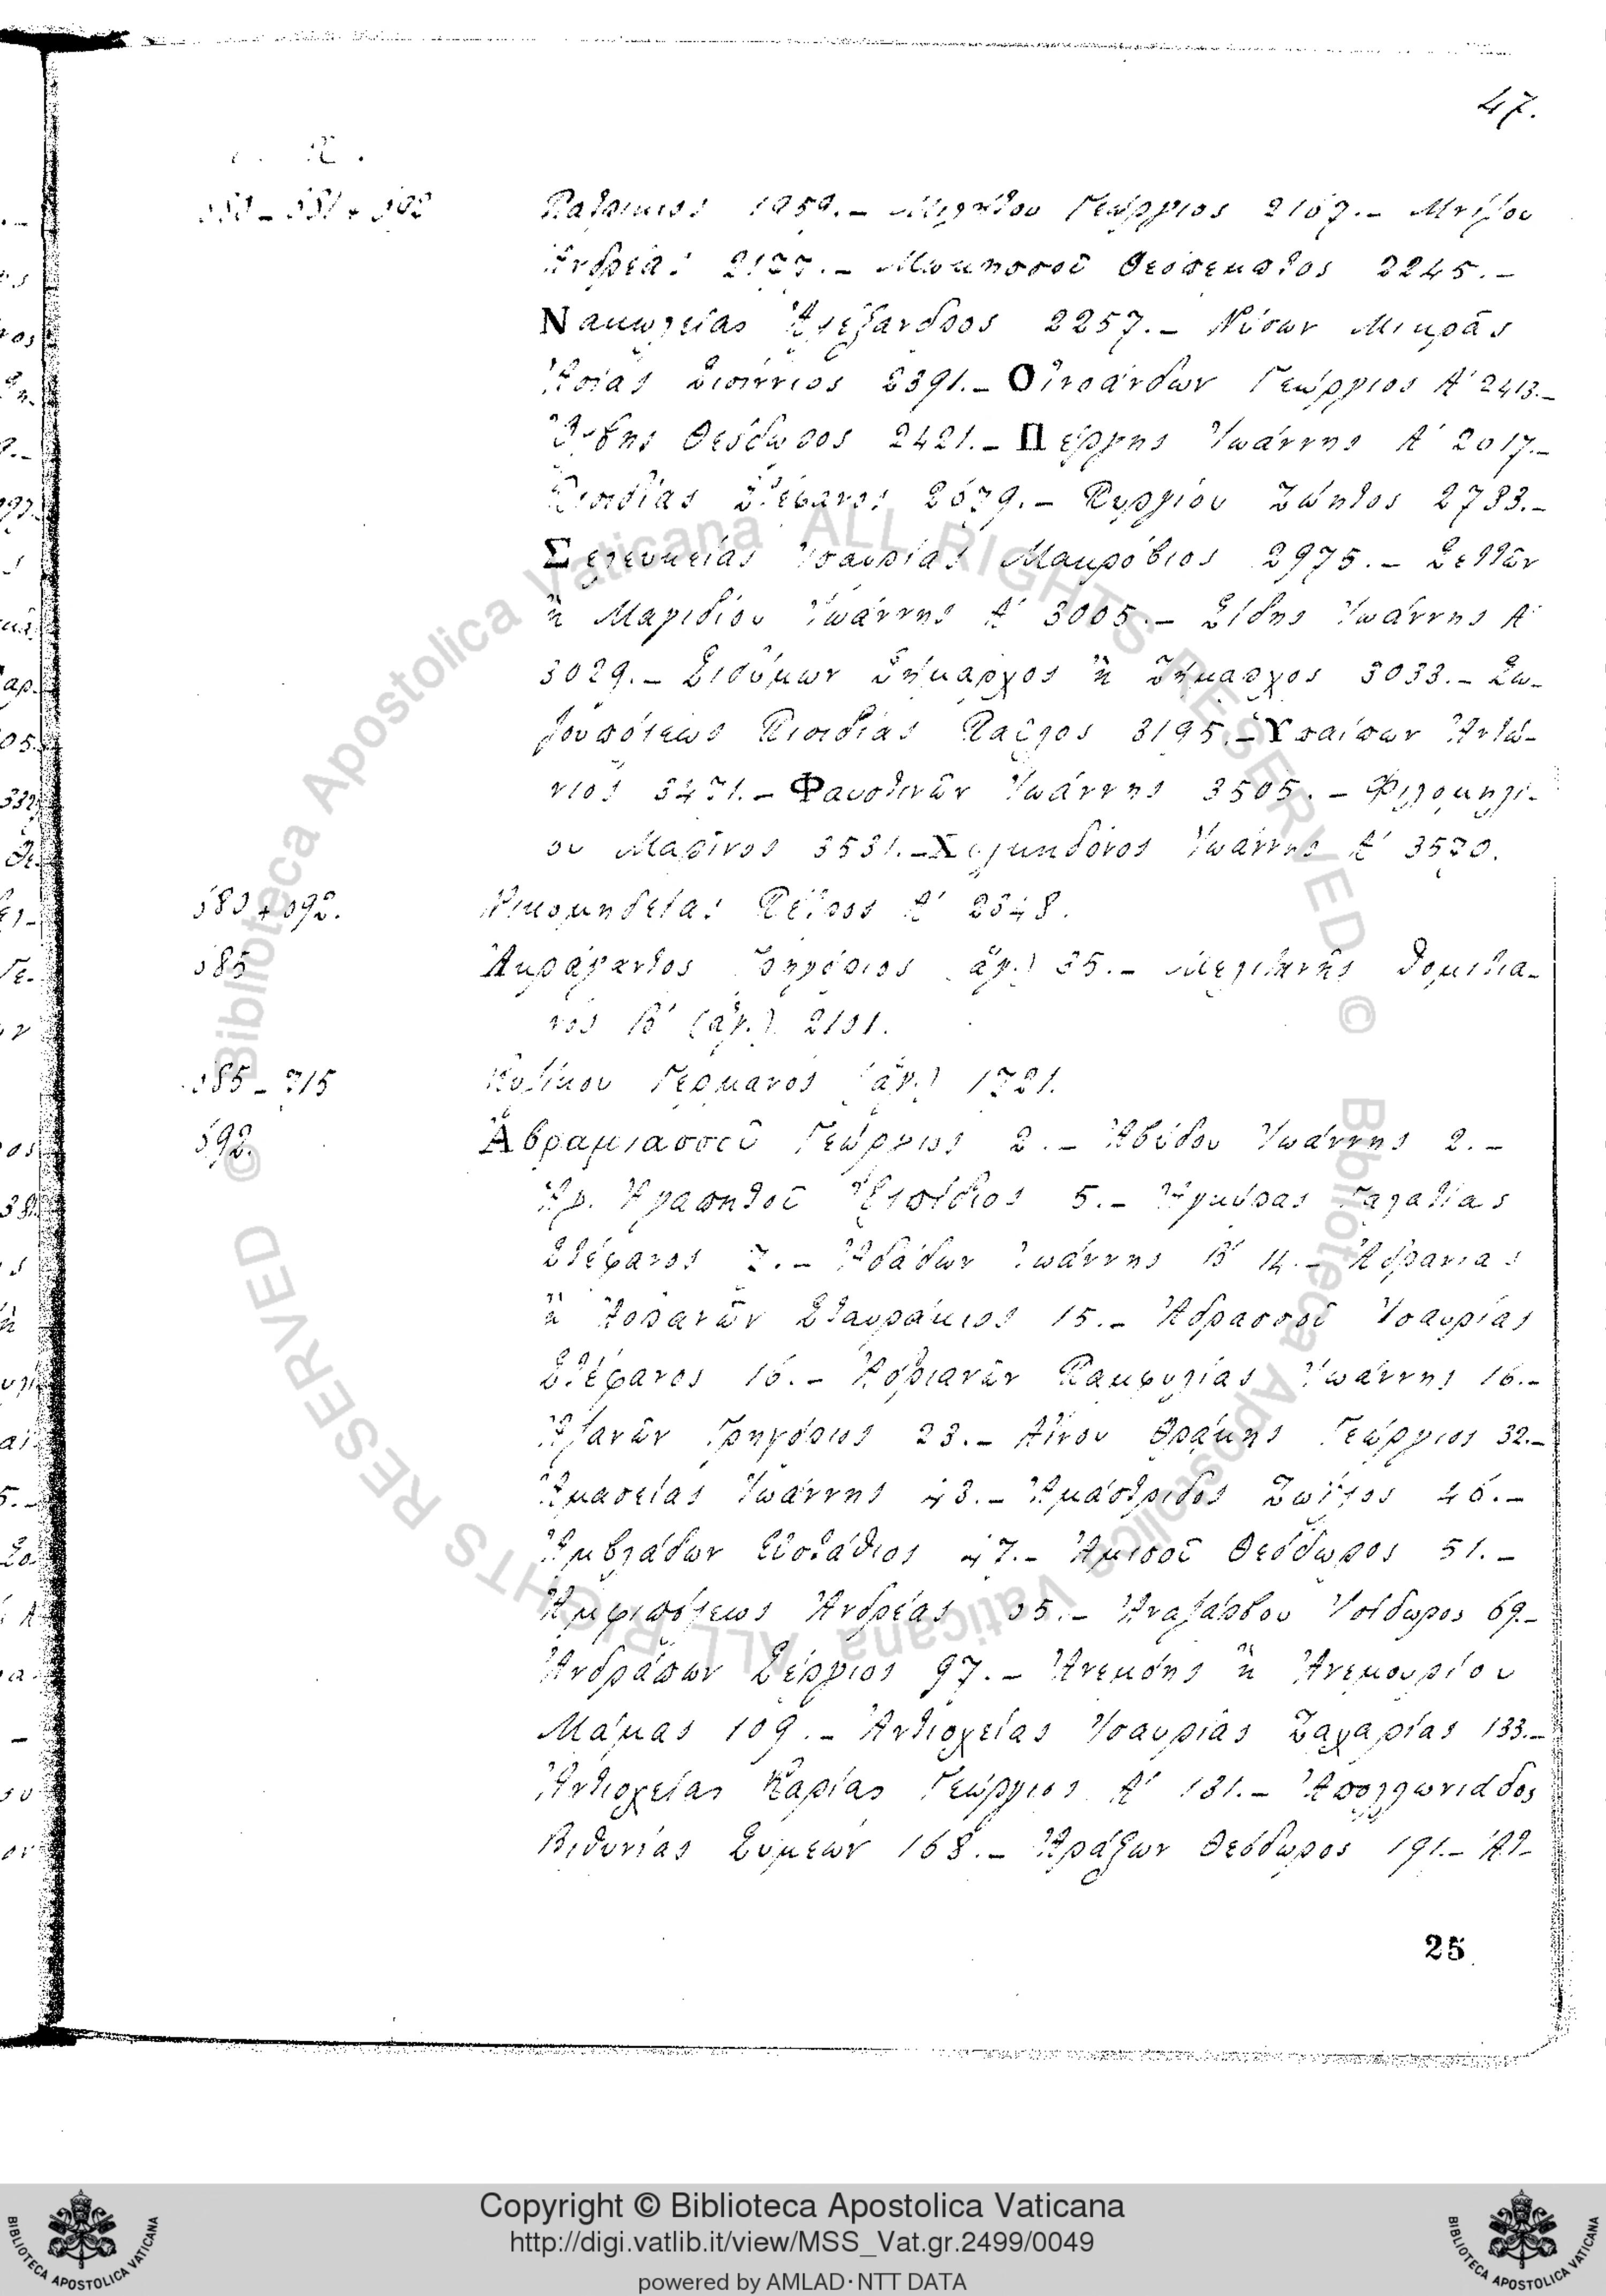 47.
Πατρίκιος 1959.- Μιχήθου Γεώργιος 2167.- Μνίζου
Ἀνδρέας 2177.- Μωκησσοῦ Θεόπεμπτος 2245.-
Νακωλείας Ἀλέξανδρος 2257.- Νύσων Μικρᾶς
Ἀσίας Σισίννιος 2391.- Οἰνοάνδων Γεώργιος Α' 2413.-
Θεόδωρος 2421.- Πέργης Ἰωάννης Α' 2017.-
Πισιδίας Στέφανος 2679.- Πυργίου Ζώητος 2733.-
Σελευκείας Ἰσαυρίας Μακρόβιος 2975.- Σελλῶν
ἢ Μαγιδίου Ἰωάννης Α' 3005.- Σίδης Ἰωάννης Α'
3029.- Σιδύμων Δήμαρχος ἢ Ζήμαρχος 3033.- Σω-
ζουπόλεως Πισιδίας Παῦλος 3195.- Ὑπαίπων Ἀντώ-
νιος 3471.- Φαυστινῶν Ἰωάννης 3505.- Φιλομηλί-
ου Μαρῖνος 3531.- Χαλκηδόνος Ἰωάννης Α' 3570.
Νικομηδείας Πέτρος Α' 2348.
685 Ἀκράγαντος Γρηγόριος (ἅγ.) 35.- Μελιτηνῆς Δομιτια-
νὸς Β' (ἅγ.) 2101.
685 - 715 Κυζίκου Γερμανὸς (ἅγ.) 1721.
692. Ἀβραμιασσοῦ Γεώργιος 2.- Ἀβύδου Ἰωάννης 2.-
Ἁγ. Ἀγαπητοῦ Ἐλπίδιος 5.- Ἀγκύρας Γαλατίας
Στέφανος 7.- Ἀδάδων Ἰωάννης Β' 14.- Ἀδρανίας
ἢ Ἀδρανῶν Σταυράκιος 15.- Ἀδρασσοῦ Ἰσαυρίας
Στέφανος 16.- Ἀδριανῶν Παμφυλίας Ἰωάννης 16.-
Ἀζανῶν Γρηγόριος 23.- Αἴνου Θράκης Γεώργιος 32.-
Ἀμασείας Ἰωάννης 43.- Ἀμάστριδος Ζωΐλος 46.-
Ἀμβλάδων Εὐστάθιος 47.- Ἀμισοῦ Θεόδωρος 51.-
Ἀμφιπόλεως Ἀνδρέας 55.- Ἀναζάρβου Ἰσίδωρος 69.-
Ἀνδράπων Σέργιος 97.- Ἀνεμόης ἢ Ἀνεμουρίου
Μάμας 109.- Ἀντιοχείας Ἰσαυρίας Ζαχαρίας 133.-
Ἀντιοχείας Καρίας Γεώργιος Α' 131.- Ἀπολλωνιάδος
Βιθυνίας Συμεὼν 168.- Ἀράξων Θεόδωρος 191.- Ἀτ-
25
Copyright © Biblioteca Apostolica Vaticana
http://digi.vatlib.it/view/MSS_Vat.gr.2499/0049
powered by AMLAD·NTT DATA
BIBLIOTECA APOSTOLICA VATICANA
BIBLIOTECA APOSTOLICA VATICANA
© Biblioteca Apostolica Vaticana ALL RIGHTS RESERVED
© Biblioteca Apostolica Vaticana ALL RIGHTS RESERVED